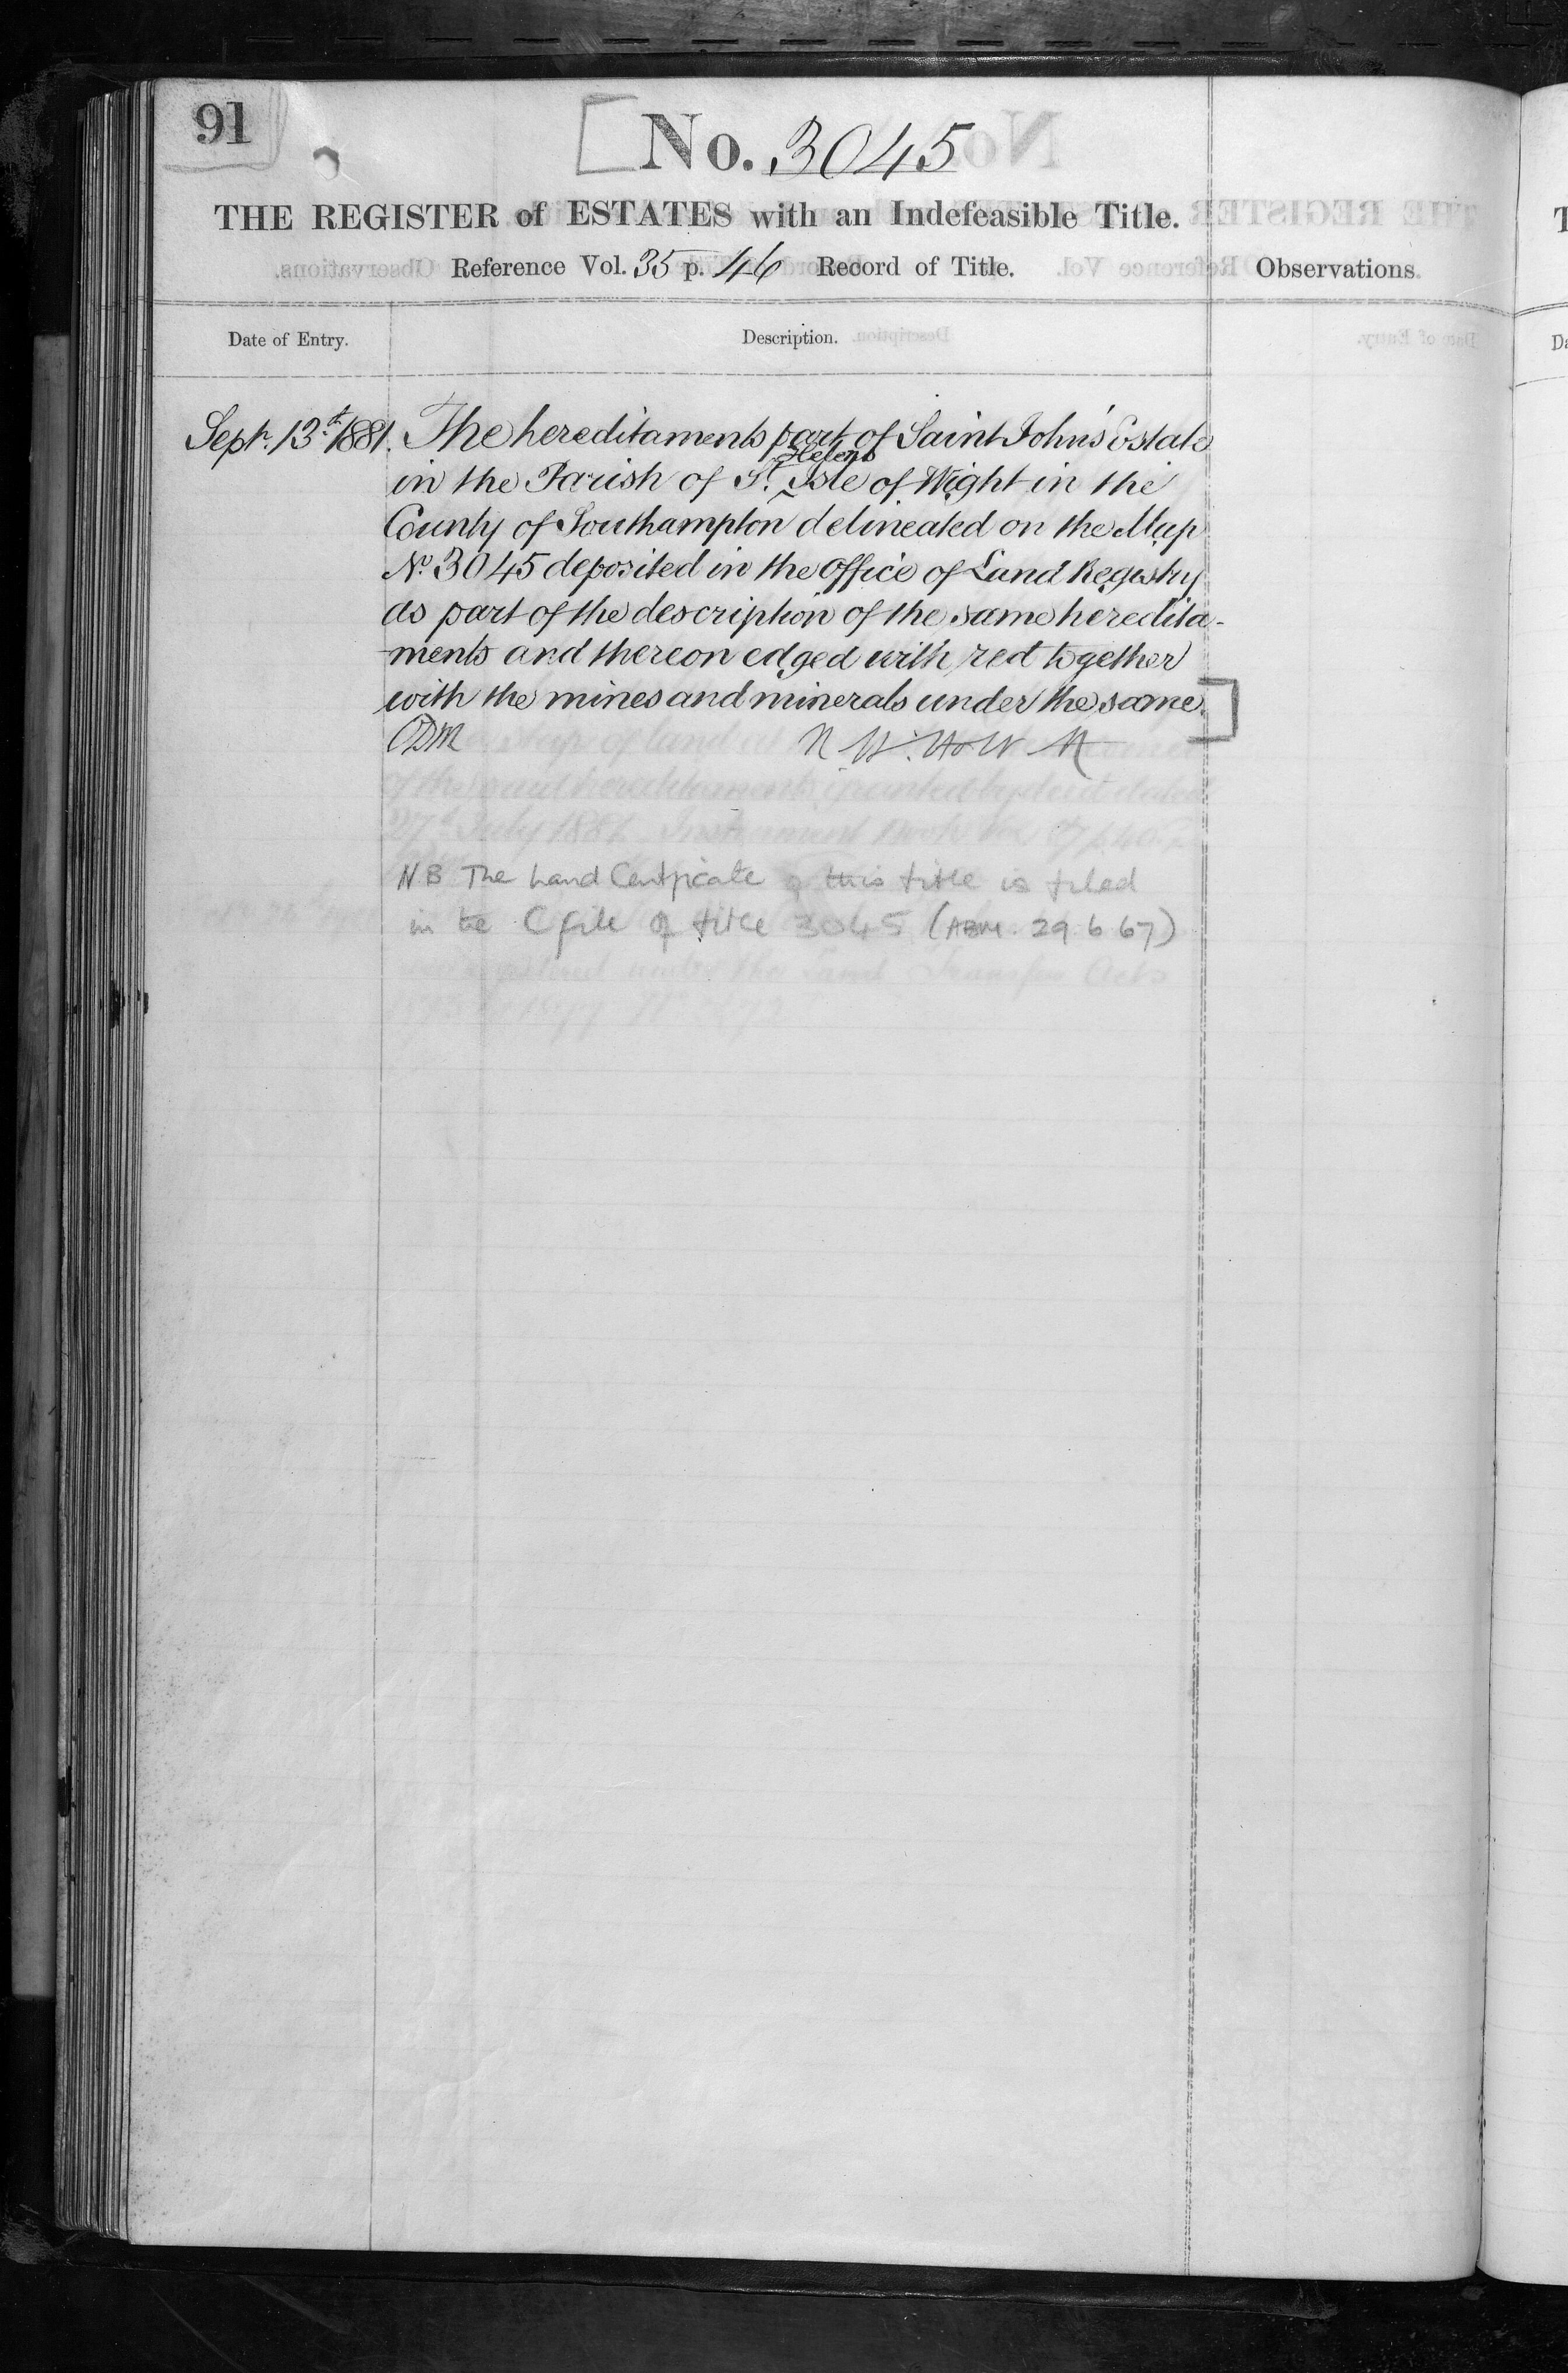 91
No. 3045
THE REGISTER of ESTATES with an Indefeasible Title.
Reference Vol. 35 p. 46 Record of Title.
Observations.
Date of Entry.
Description.
Sept. 13th 1881. The hereditaments part of Saint John's Estate
in the Parish of St. Helens Isle of Wight in the
County of Southampton delineated on the Map
No. 3045 deposited in the Office of Land Registry
as part of the description of the same heredita-
ments and thereon edged with red together
with the mines and minerals under the same.
NB The Land Certificate of this title is filed
in the C file of title 3045 (ABM. 29 6 67)